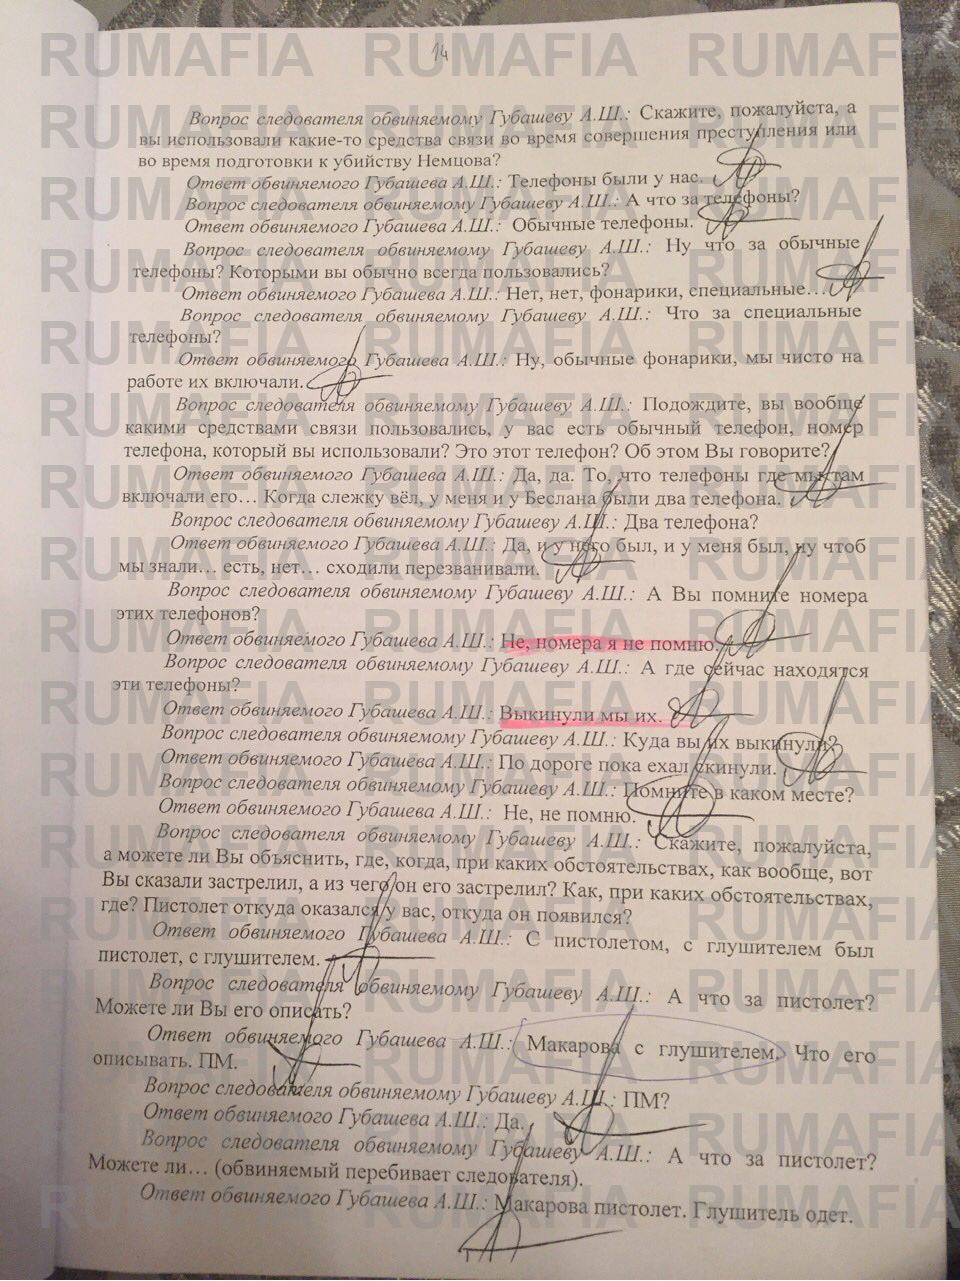 14
Вопрос следователя обвиняемому Губашеву А.Ш.: Скажите, пожалуйста, а
вы использовали какие-то средства связи во время совершения преступления или
во время подготовки к убийству Немцова?
Ответ обвиняемого Губашева А.Ш.: Телефоны были у нас.
Вопрос следователя обвиняемому Губашеву А.Ш.: А что за телефоны?
Ответ обвиняемого Губашева А.Ш.: Обычные телефоны.
Вопрос следователя обвиняемому Губашеву А.Ш.: Ну что за обычные
телефоны? Которыми вы обычно всегда пользовались?
Ответ обвиняемого Губашева А.Ш.: Нет, нет, фонарики, специальные…
Вопрос следователя обвиняемому Губашеву А.Ш.: Что за специальные
телефоны?
Ответ обвиняемого Губашева А.Ш.: Ну, обычные фонарики, мы чисто на
работе их включали.
Вопрос следователя обвиняемому Губашеву А.Ш.: Подождите, вы вообще
какими средствами связи пользовались, у вас есть обычный телефон, номер
телефона, который вы использовали? Это этот телефон? Об этом Вы говорите?
Ответ обвиняемого Губашева А.Ш.: Да, да. То, что телефоны где мы там
включали его… Когда слежку вёл, у меня и у Беслана были два телефона.
Вопрос следователя обвиняемому Губашеву А.Ш.: Два телефона?
Ответ обвиняемого Губашева А.Ш.: Да, и у него был, и у меня был, ну чтоб
мы знали… есть, нет… сходили перезванивали.
Вопрос следователя обвиняемому Губашеву А.Ш.: А Вы помните номера
этих телефонов?
Ответ обвиняемого Губашева А.Ш.: Не, номера я не помню.
Вопрос следователя обвиняемому Губашеву А.Ш.: А где сейчас находятся
эти телефоны?
Ответ обвиняемого Губашева А.Ш.: Выкинули мы их.
Вопрос следователя обвиняемому Губашеву А.Ш.: Куда вы их выкинули?
Ответ обвиняемого Губашева А.Ш.: По дороге пока ехал скинули.
Вопрос следователя обвиняемому Губашеву А.Ш.: Помните в каком месте?
Ответ обвиняемого Губашева А.Ш.: Не, не помню.
Вопрос следователя обвиняемому Губашеву А.Ш.: Скажите, пожалуйста,
а можете ли Вы объяснить, где, когда, при каких обстоятельствах, как вообще, вот
Вы сказали застрелил, а из чего он его застрелил? Как, при каких обстоятельствах,
где? Пистолет откуда оказался у вас, откуда он появился?
Ответ обвиняемого Губашева А.Ш.: С пистолетом, с глушителем был
пистолет, с глушителем.
Вопрос следователя обвиняемому Губашеву А.Ш.: А что за пистолет?
Можете ли Вы его описать?
Ответ обвиняемого Губашева А.Ш.: Макарова с глушителем. Что его
описывать. ПМ.
Вопрос следователя обвиняемому Губашеву А.Ш.: ПМ?
Ответ обвиняемого Губашева А.Ш.: Да.
Вопрос следователя обвиняемому Губашеву А.Ш.: А что за пистолет?
Можете ли… (обвиняемый перебивает следователя).
Ответ обвиняемого Губашева А.Ш.: Макарова пистолет. Глушитель одет.
RUMAFIA